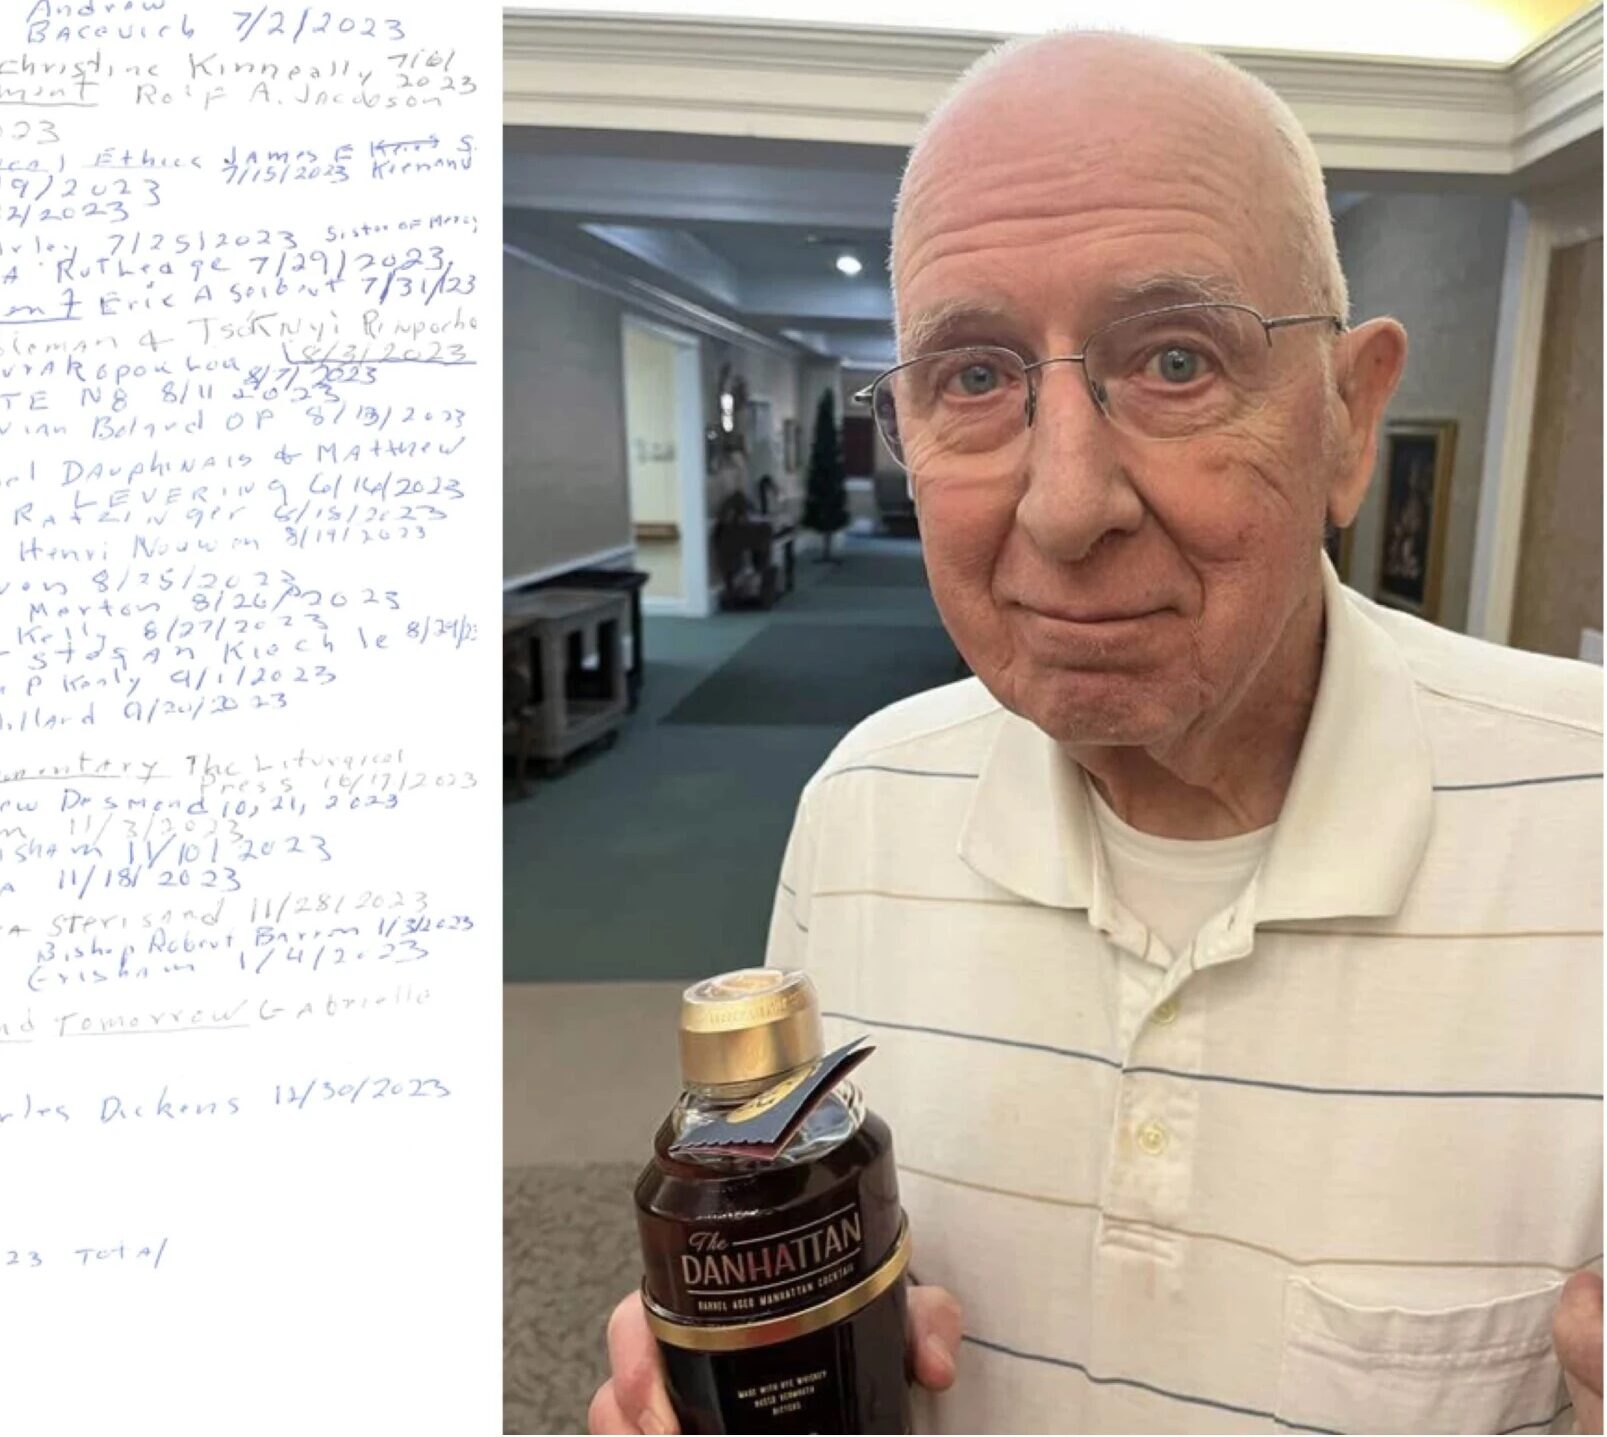 Andrew
Bacevich 7/2/2023
Christine Kinneally 7/6/
2023
ment Rolf A. Jacobson
023
ical Ethics James F Keenan S.
7/15/2023
9/2023
2/2023
rley 7/25/2023 Sister of Mercy
A Rutledge 7/29/2023
Eric A Seibert 7/31/23
oleman & Tsoknyi Rinpoche
8/3/2023
8/7/2023
TE Ng 8/11 2023
vian Boland OP 8/13/2023
el Dauphinais & Matthew
LEVERING 6/14/2023
Ratzinger 8/18/2023
Henri Nouwen 8/19/2023
von 8/25/2023
Merton 8/26/2023
Kelly 8/27/2023
8/29/23
P Kenly 9/1/2023
illard 9/20/2023
mentary The Liturgical
Press 10/17/2023
ew Desmond 10, 21, 2023
m 11/3/2023
isham 11/10/2023
A 11/18/2023
11/28/2023
Bishop Robert Barron 1/3/2023
Grisham 1/4/2023
nd Tomorrow Gabrielle
rles Dickens 12/30/2023
23 Total
The
DANHATTAN
BARREL AGED MANHATTAN COCKTAIL
MADE WITH RYE WHISKEY
SWEET VERMOUTH
BITTERS